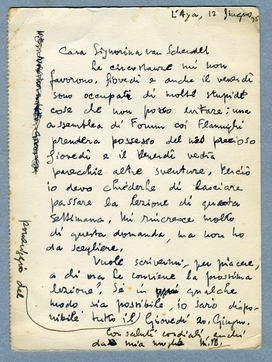 L'Aja, 12 Giugno,
Cara Signorina van Scheidel
Le circostanze mi non
favorono, Giovedì e anche il venerdì
sono occupati di molte stupide
cose che non posso evitare: una
assemblea di Forum coi Flaminghi
prenderà possesso del prezioso
Giovedì e il Venerdì vedrà
parecchie altre sventure. Perciò
io devo chiederle di lasciare
passare la lezione di questa
settimana. Mi rincresce molto
di questa domanda, ma non ho
da scegliere.
Vuole scrivermi, per piacere,
a di ora Le conviene la prossima
lezione? Se in qualche
modo sia possibile, io sarò dispo-
nibile tutto il Giovedì 20, Giugno.
Con saluti cordiali anche
da mia moglie
pomeriggio del